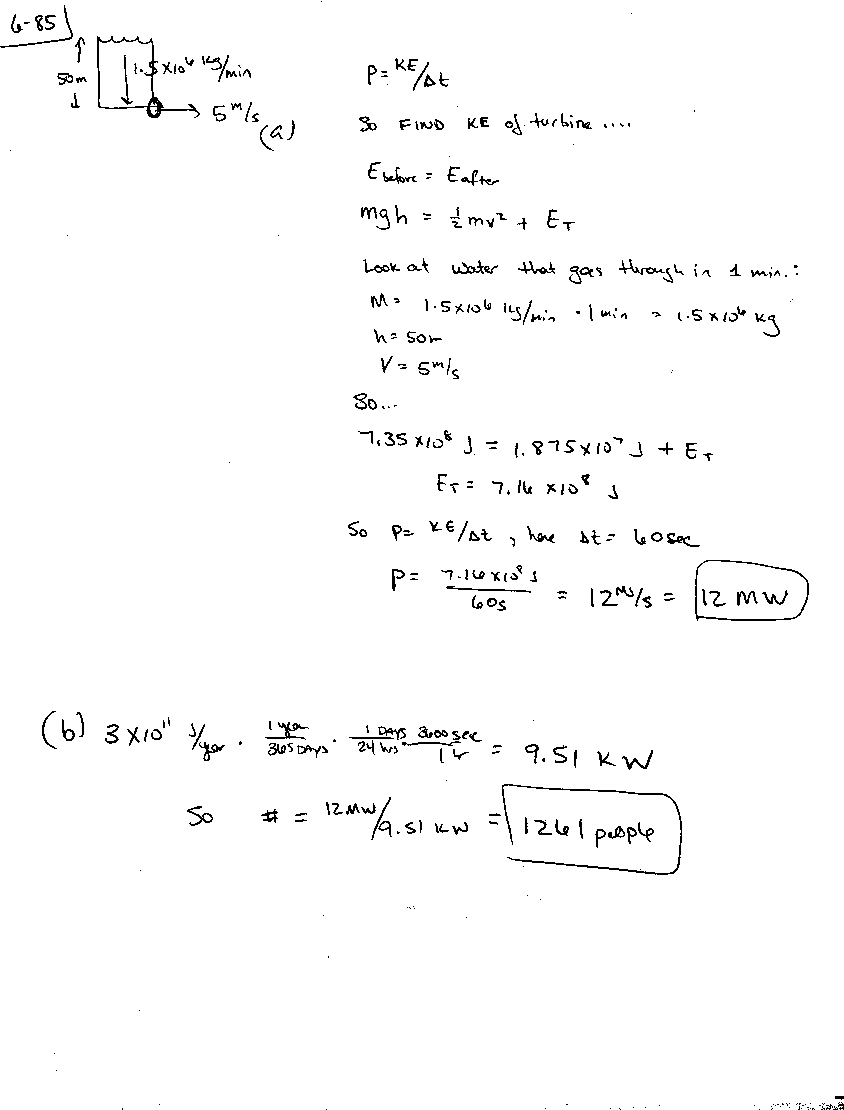 6-85
50m
1.5×10⁶ kg/min
5 m/s
(a)
P = KE/Δt
So FIND KE of turbine ....
Ebefore = Eafter
mgh = ½mv² + E_T
Look at water that goes through in 1 min.:
M = 1.5×10⁶ kg/min · 1 min = 1.5×10⁶ kg
h = 50m
V = 5 m/s
So...
7.35×10⁸ J = 1.875×10⁷ J + E_T
E_T = 7.16×10⁸ J
So P = KE/Δt, here Δt = 60sec
P = 7.16×10⁸ J / 60s = 12 MJ/s = 12 MW
(b) 3×10¹¹ J/year · 1 year/365 DAYS · 1 DAYS/24 hrs · 3600 sec/1 hr = 9.51 KW
So # = 12 MW/9.51 KW = 1261 people